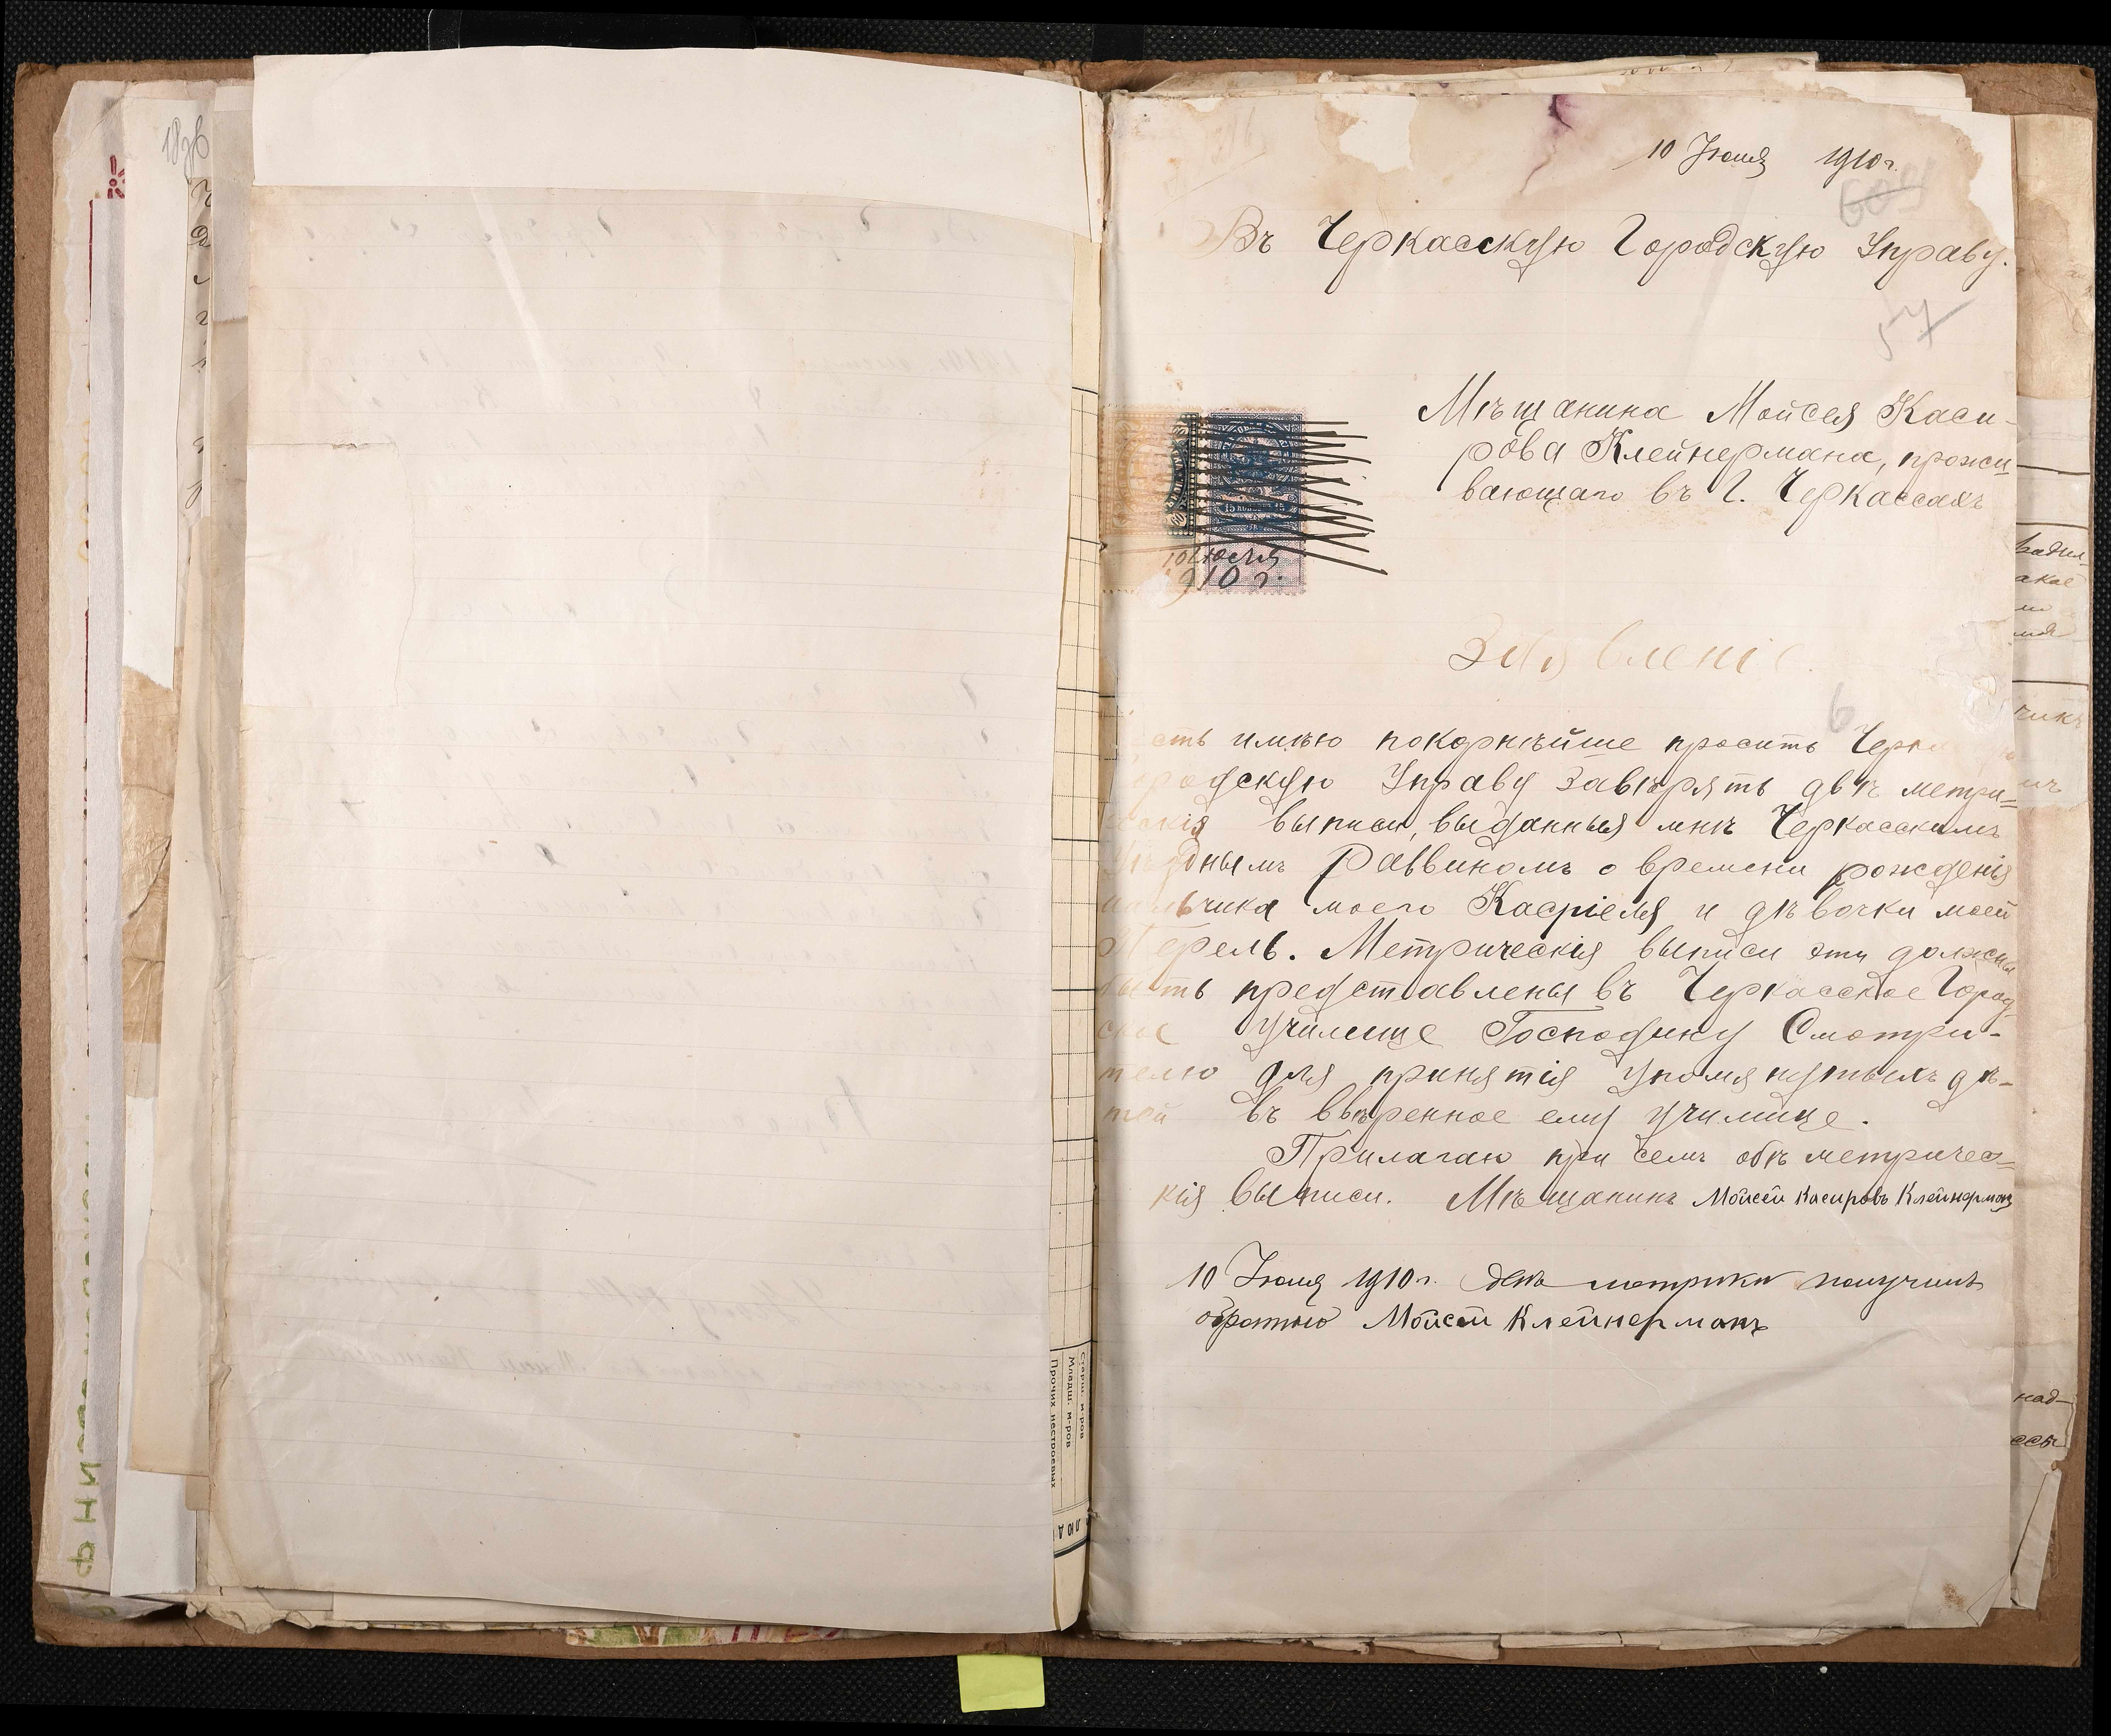 10 Июля 1910 г.
609
Въ Черкасскую Городскую Управу.
57
Мѣщанина Мойсея Каси-
рова Клейнермана, прожи-
вающаго въ Г. Черкассахъ
15 КОПѢЕКЪ 15
10 Июля
910 г.
Заявленіе.
6
сть имѣю покорнѣйше просить Черка
ородскую Управу завѣрять двѣ метри=
ческія выписи, выданныя мнѣ Черкасскимъ
Уѣзднымъ Раввиномъ о времени рожденія
мальчика моего Касріеля и дѣвочки моей
Перель. Метрическія выписи эти должны
быть представлены въ Черкасское Город-
ское училище Господину Смотри-
телю для принятія упомянутыхъ дѣ-
тей въ ввѣренное ему училище.
Прилагаю при семъ обѣ метричес=
кія выписи. Мѣщанинъ Мойсей Касировъ Клейнерманъ
10 Июля 1910 г. две метрики получилъ
обратно Мойсей Клейнерманъ
Старш. м-ров
Младш. м-ров
Прочих нестроевых